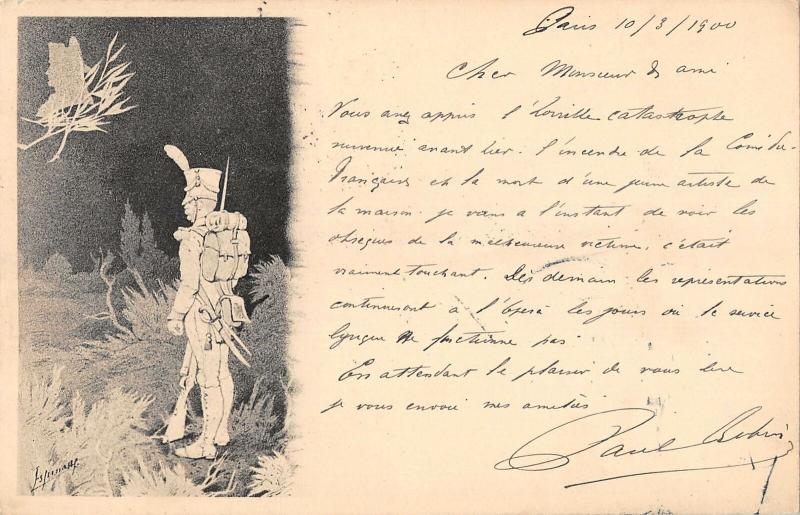 Paris 10/3/1900
Cher Monsieur & ami
Vous avez appris l'horrible catastrophe
survenue avant hier. l'incendie de la Comédie-
Française et la mort d'une jeune artiste de
la maison. je viens à l'instant de voir les
obsèques de la malheureuse victime, c'était
vraiment touchant. Dès demain les représentations
continueront à l'Opéra les jours où le service
lyrique ne fonctionne pas.
En attendant le plaisir de vous lire
je vous envoie mes amitiés
Paul